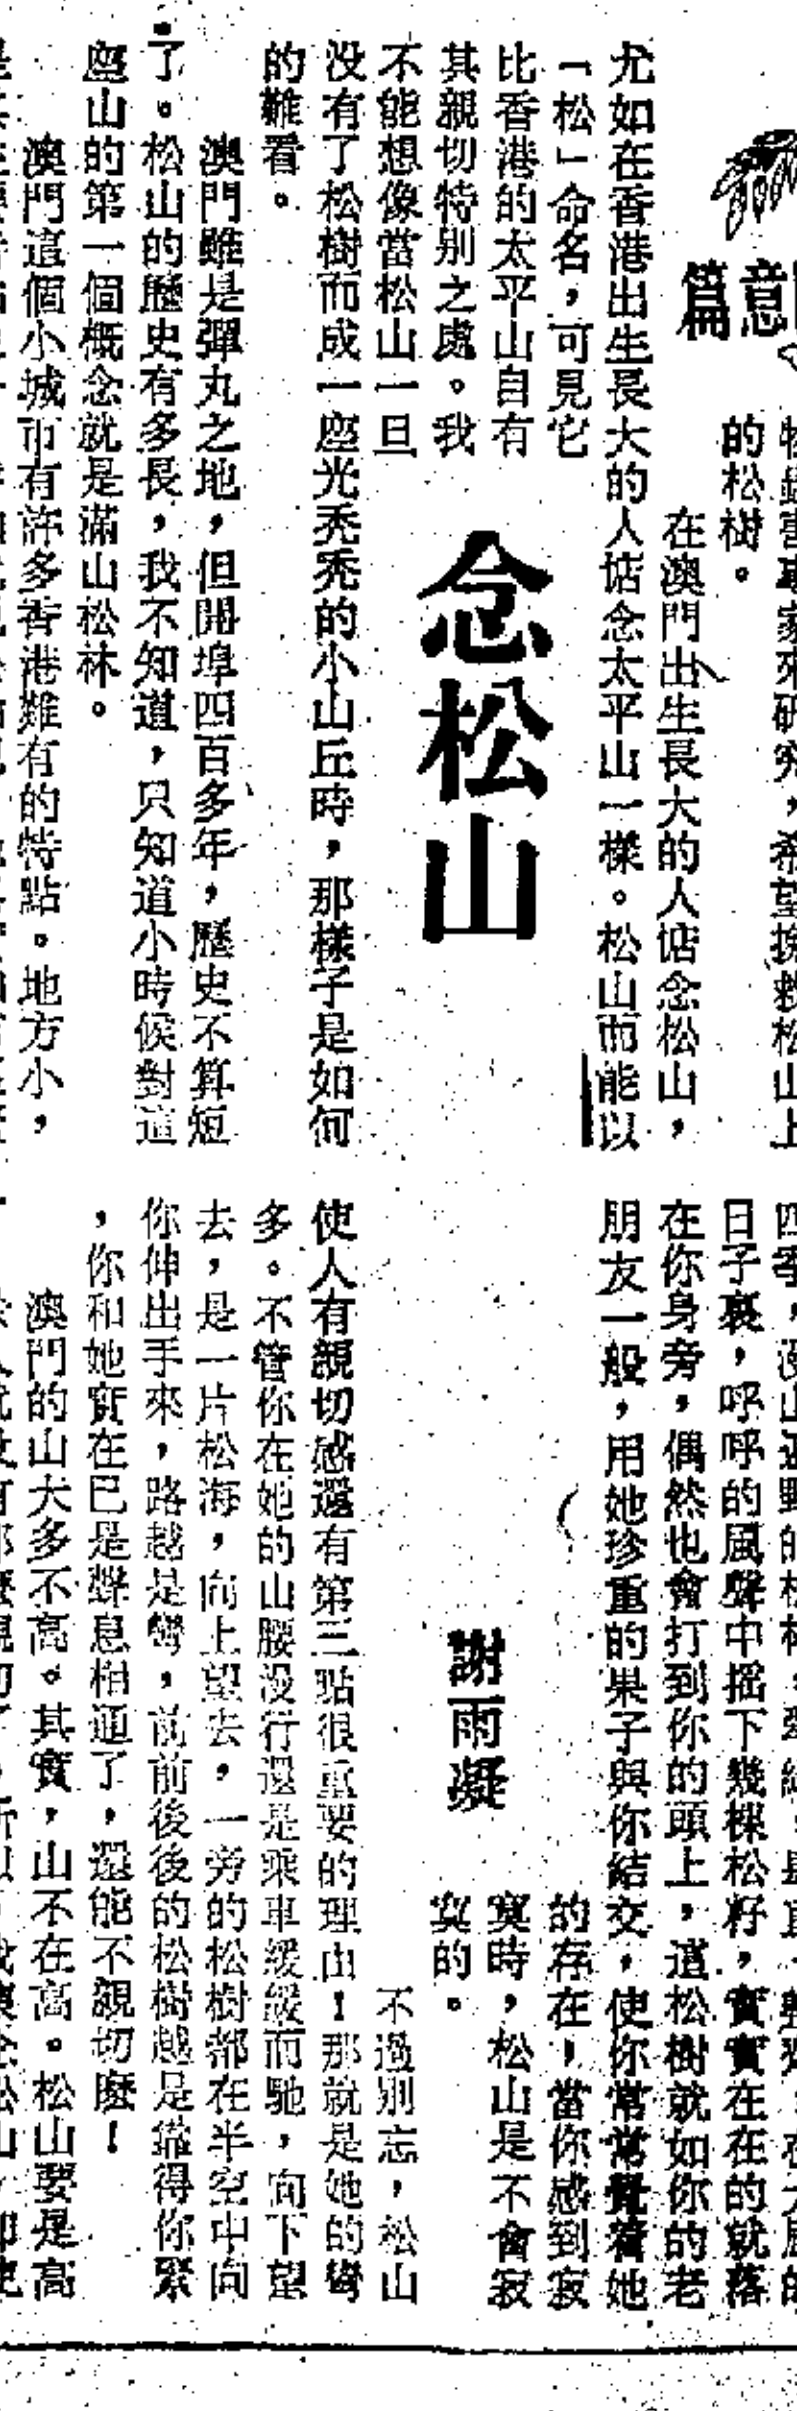 意
篇
念松山
謝雨凝
的松樹。
在澳門出生長大的人惦念松山，
尤如在香港出生長大的人惦念太平山一樣。松山而能以
「松」命名，可見它
比香港的太平山自有
其親切特別之處。我
不能想像當松山一旦
没有了松樹而成一座光禿禿的小山丘時，那樣子是如何
的難看。
澳門雖是彈丸之地，但開埠四百多年，歷史不算短
了。松山的歷史有多長，我不知道，只知道小時候對這
座山的第一個概念就是滿山松林。
澳門這個小城市有許多香港難有的特點。地方小，
日子裏，呼呼的風聲中摇下幾棵松籽，實實在在的就落
在你身旁，偶然也會打到你的頭上，這松樹就如你的老
朋友一般，用她珍重的果子與你結交，使你常常覺着她
的存在，當你感到寂
寞時，松山是不會寂
寞的。
不過別忘，松山
使人有親切感還有第三點很重要的理由！那就是她的彎
多。不管你在她的山腰没行還是乘車緩緩而馳，向下望
去，是一片松海，向上望去，一旁的松樹都在半空中向
你伸出手來，路越是彎，前前後後的松樹越是靠得你緊
，你和她實在已是聲息相通了，還能不親切麽！
澳門的山大多不高。其實，山不在高。松山要是高